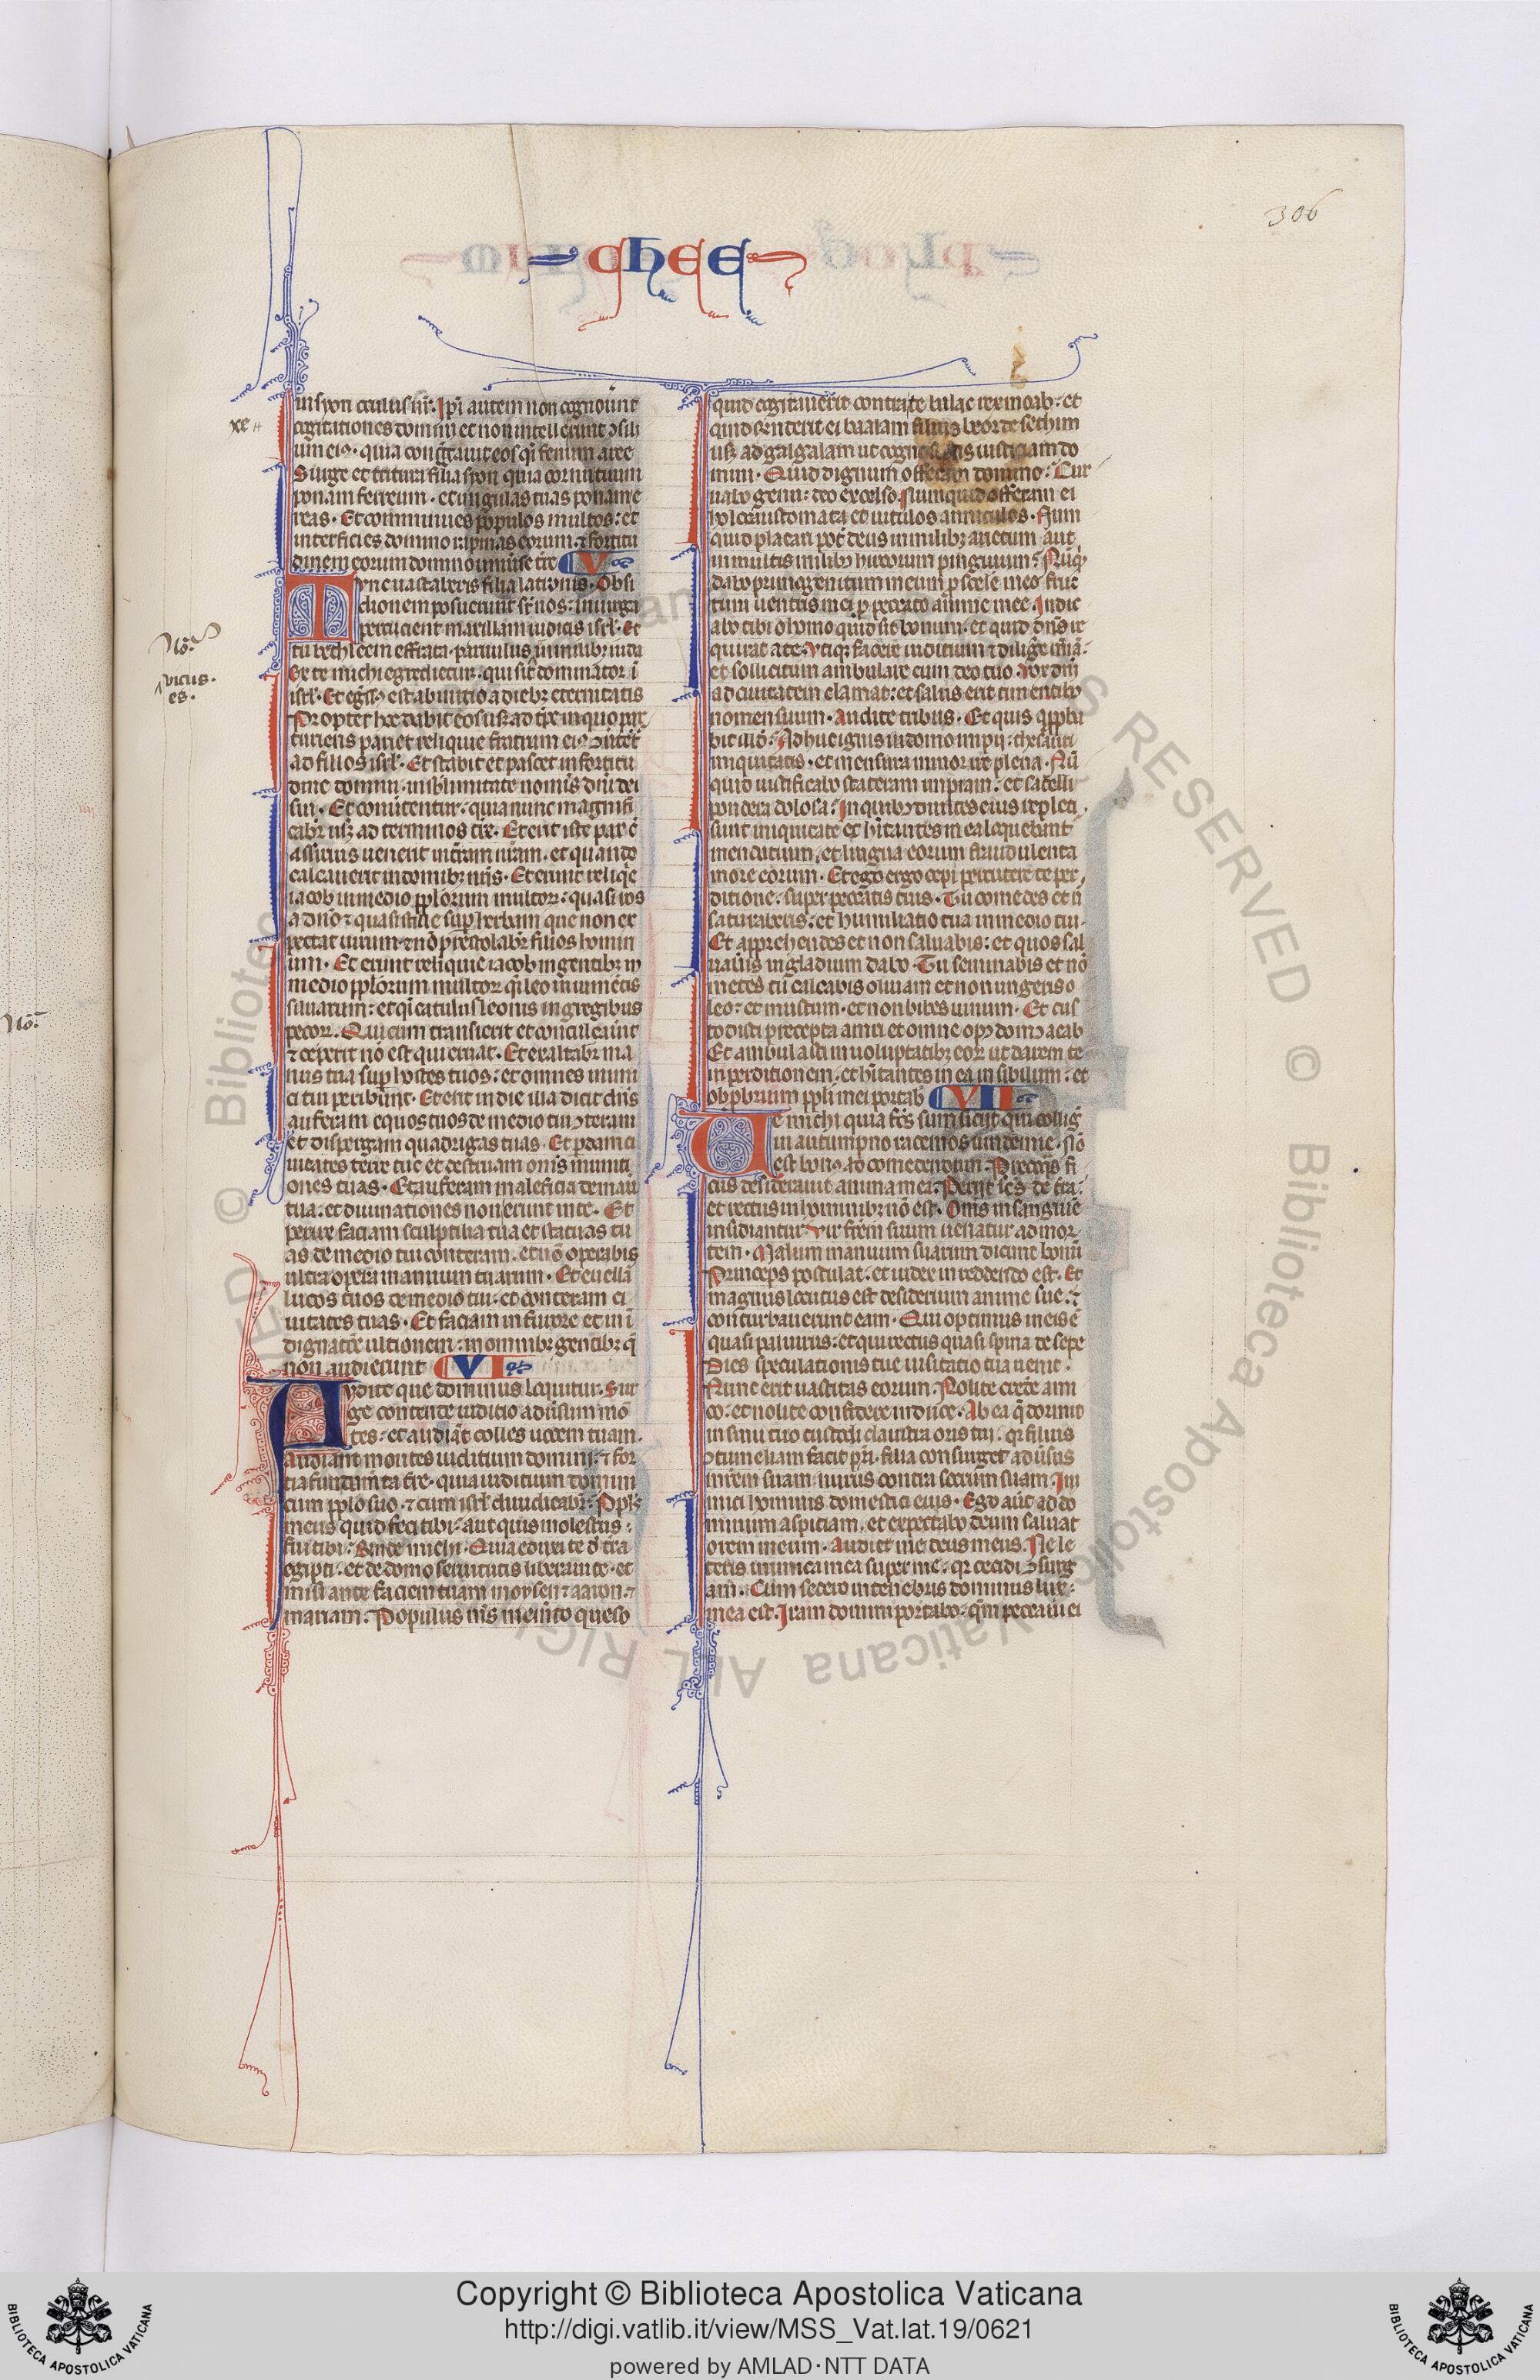 306
chee
in syon oculus nr̄. Ipi autem non cognoūnt
cogitationes domini et non intellexerunt ɔsili
um eiꝰ. quia congͣgauit eos qͥ fenum aree
Surge et tritura filia syon quia cornu tuum
ponam ferreum. et ungulas tuas ponam e
reas. Et comminues populos multos: et
interficies domino rapinas eorum. ⁊ fortitu
dinem eorum domino uniuͥse tr̄e V
Nunc uastaberis filia latronis. Obsi
dionem posuerunt sr̄ nos: in uirga
percucient maxillam iudicis isrl̄. Et
tu bethleem effrata. paruulus in milibꝫ iuda
Ex te michi egredietur. qui sit dominator ī
isrl̄. Et egr̄sꝰ eiꝰ ab initio a diebꝫ eternitatis
Propter hoc dabit eos usqꝫ ad tp̄s in quo par
turiens pariet reliquie fratrum eiꝰ ɔuertēt
ad filios isrl̄. Et stabit et pascet in fortitu
dine domini. in sublimitate nominis dn̄i dei
sui. Et conuertentur. quia nunc magnifi
cabꝛ usqꝫ ad terminos tr̄e. Et erit iste pax c̄
assirius uenerit in t̄ram nr̄am. et quando
calcauerit in domibꝫ nr̄is. Et erunt reliqͥe
iacob in medio ppl̄orum multoꝝ: quasi ros
a dn̄o ⁊ quasi stille sup herbam que non ex
pectat uirum. ⁊ nō prestolabꝛ filios homin
um. Et erunt reliquie iacob in gentibꝫ in
medio ppl̄orum multoꝝ qͥ leo in iumētis
siluarum: et qͥ catulus leonis in gregibus
pecoꝝ. Qui cum transierit et conculcauͥit
⁊ ceperit nō est qui eruat. Et exaltabꝛ ma
nus tua sup hostes tuos: et omnes inimi
ci tui peribunt. Et erit in die illa dicit dn̄s
auferam equos tuos de medio tui ⁊ teram
et dispergam quadrigas tuas. Et perdam ci
uitates terre tue et destruam omīs muniti
ones tuas. Et auferam maleficia de manu
tua: et diuinationes non erunt in te. Et
perire faciam sculptilia tua et statuas tu
as de medio tui conteram. et nō operabis
ultra opera manuum tuarum. Et euellā
lucos tuos de medio tui. et conteram ci
uitates tuas. Et faciam in furore et in ī
dignatōe ultionem: in omnibꝫ gentibꝫ q̄
non audierunt VI
Audite que dominus loquitur. Sur
ge contende iuditio aduͥsum mō
tes: et audiāt colles uocem tuam.
Audiant montes iuditium domini. ⁊ for
tia fundamīta tr̄e. quia iuditium domini
cum pplo suo. ⁊ cum isrl̄ diiudicabꝛ. Ppls
meus quid feci tibi. aut quis molestus
fui tibi. Rn̄de michi. Quia eduxi te d̄ t̄ra
egipti. et de domo seruitutis liberaui te. et
misi ante faciem tuam moysen ⁊ aaron. ⁊
mariam. Populus mīs memīto queso
quid cogitauerit contra te balac rex moab: et
quid rn̄derit ei balaam filius beor de sethim
usqꝫ ad galgalam ut cognosceres iusticiam do
mini. Quid dignum offeram domino. Cur
uabo genu: deo excelso. Numquid offeram ei
holocaustomata et uitulos anniculos. Num
quid placari pōt deus in milibꝫ arietum aut
in multis milibꝫ hircorum pinguium. Nūqͥ
dabo primogenitum meum p scelē meo. fruc
tum uentris mei p peccato anime mee. Indic
abo tibi o homo quid sit bonum. et quid dn̄s re
quirat a te. Vtiqꝫ facere iuditium ⁊ diligē mīaꝫ
et sollicitum ambulare cum deo tuo. Vox dn̄i
ad ciuitatem clamat: et salus erit timentibꝫ
nomen suum. Audite tribus. Et quis appba
bit illō: Adhuc ignis in domo impii: thesauri
iniquitatis. et mensura minor ire plena. Nū
quid iustificabo stateram impiam. et sacelli
pondera dolosa. In quibꝫ diuites eius repleti
sunt iniquitate et hītantes in ea loquebant
mendatium. et lingua eorum fraudulenta
in ore eorum. Et ego ergo cepi percutere te per
ditione. super peccatis tuis. Tu comedes et n̄
saturaberis: et humiliatio tua in medio tui.
Et apprehendes et non saluabis: et quos sal
uauͥis in gladium dabo. Tu seminabis et nō
metes tu calcabis oliuam et non ungens o
leo: et mustum. et non bibes uinum. Et cus
todisti precepta amri et omne opꝰ domꝰ acab
Et ambulasti in uoluptatibꝫ eoꝝ ut darem te
in perditionem. et hītantes in ea in sibilum: et
obpbrium ppli mei portabͥ VII
Ue michi quia fc̄s sum sicut qui collig
it in autumpno racemos uindemie. nō
est botrꝰ ad comedendum. Precoqͣs fi
cus desiderauit anima mea. Perijt sc̄s de t̄ra.
et rectus in hominibꝫ nō est. Om̄s in sanguīe
insidiantur. Vir fr̄em suum uenatur ad mor
tem. Malum manuum suarum dicunt bonū
Princeps postulat. et iudex in reddendo est. Et
magnus locutus est desiderium anime sue. ⁊
conturbauerunt eam. Qui optimus in eis ē
quasi paliurus: et qui rectus quasi spina de sepe
Dies speculationis tue uisitatio tua uenit.
Nunc erit uastitas eorum. Nolite credē ami
co. et nolite confidere in duce. Ab ea q̄ dormit
in sinu tuo custodi claustra oris tui. qꝛ filius
ɔtumeliam facit pr̄i. filia consurget aduͥsus
mr̄em suam. nurus contra socrum suam. Ini
mici hominis domestici eius. Ego aūt ad do
minum aspiciam. et expectabo deum saluat
orem meum. Audiet me deus meus. Ne le
teris inimica mea super me. qꝛ cecidi ɔsurg
am. Cum sedero in tenebris dominus lux
mea est. Iram domini portabo. qm̄ peccaui ei
Copyright © Biblioteca Apostolica Vaticana
http://digi.vatlib.it/view/MSS_Vat.lat.19/0621
powered by AMLAD·NTT DATA
BIBLIOTECA APOSTOLICA VATICANA
BIBLIOTECA APOSTOLICA VATICANA